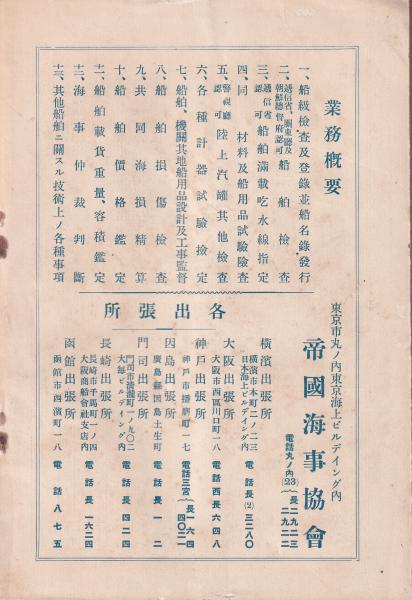 業務概要
一、船級檢查及登錄並船名錄發行
二、遞信省、關東廳及朝鮮總督府認可 船舶檢查
三、遞信省認可 船舶滿載吃水線指定
四、同 材料及船用品試驗險查
五、警視廳認可 陸上汽罐其他檢查
六、各種計器試驗檢定
七、船舶、機關其他船用品設計及工事監督
八、船舶損傷檢查
九、共同海損精算
十、船舶價格鑑定
十一、船舶載貨重量、容積鑑定
十二、海事仲裁判斷
十三、其他船舶ニ關スル技術上ノ各種事項
東京市丸ノ內東京海上ビルデイング內
帝國海事協會
電話丸ノ內(23){長二九二三 二九二二
各出張所
橫濱出張所
橫濱市本町二ノ二三
日本海上ビルデイング內 電話長(2)三二八〇
大阪出張所
大阪市西區川口町一八 電話西長六四八
神戶出張所
神戶市播磨町一七 電話三宮{長一六四 四〇二一
因島出張所
廣島縣因島土生町 電話長一二
門司出張所
門司市濱町一ノ九〇二
大每ビルデイング內 電話長四二四
長崎出張所
長崎市千馬町一ノ四
大阪商船會社支店內 電話長一六二四
函館出張所
函館市西濱町一八 電話八七五